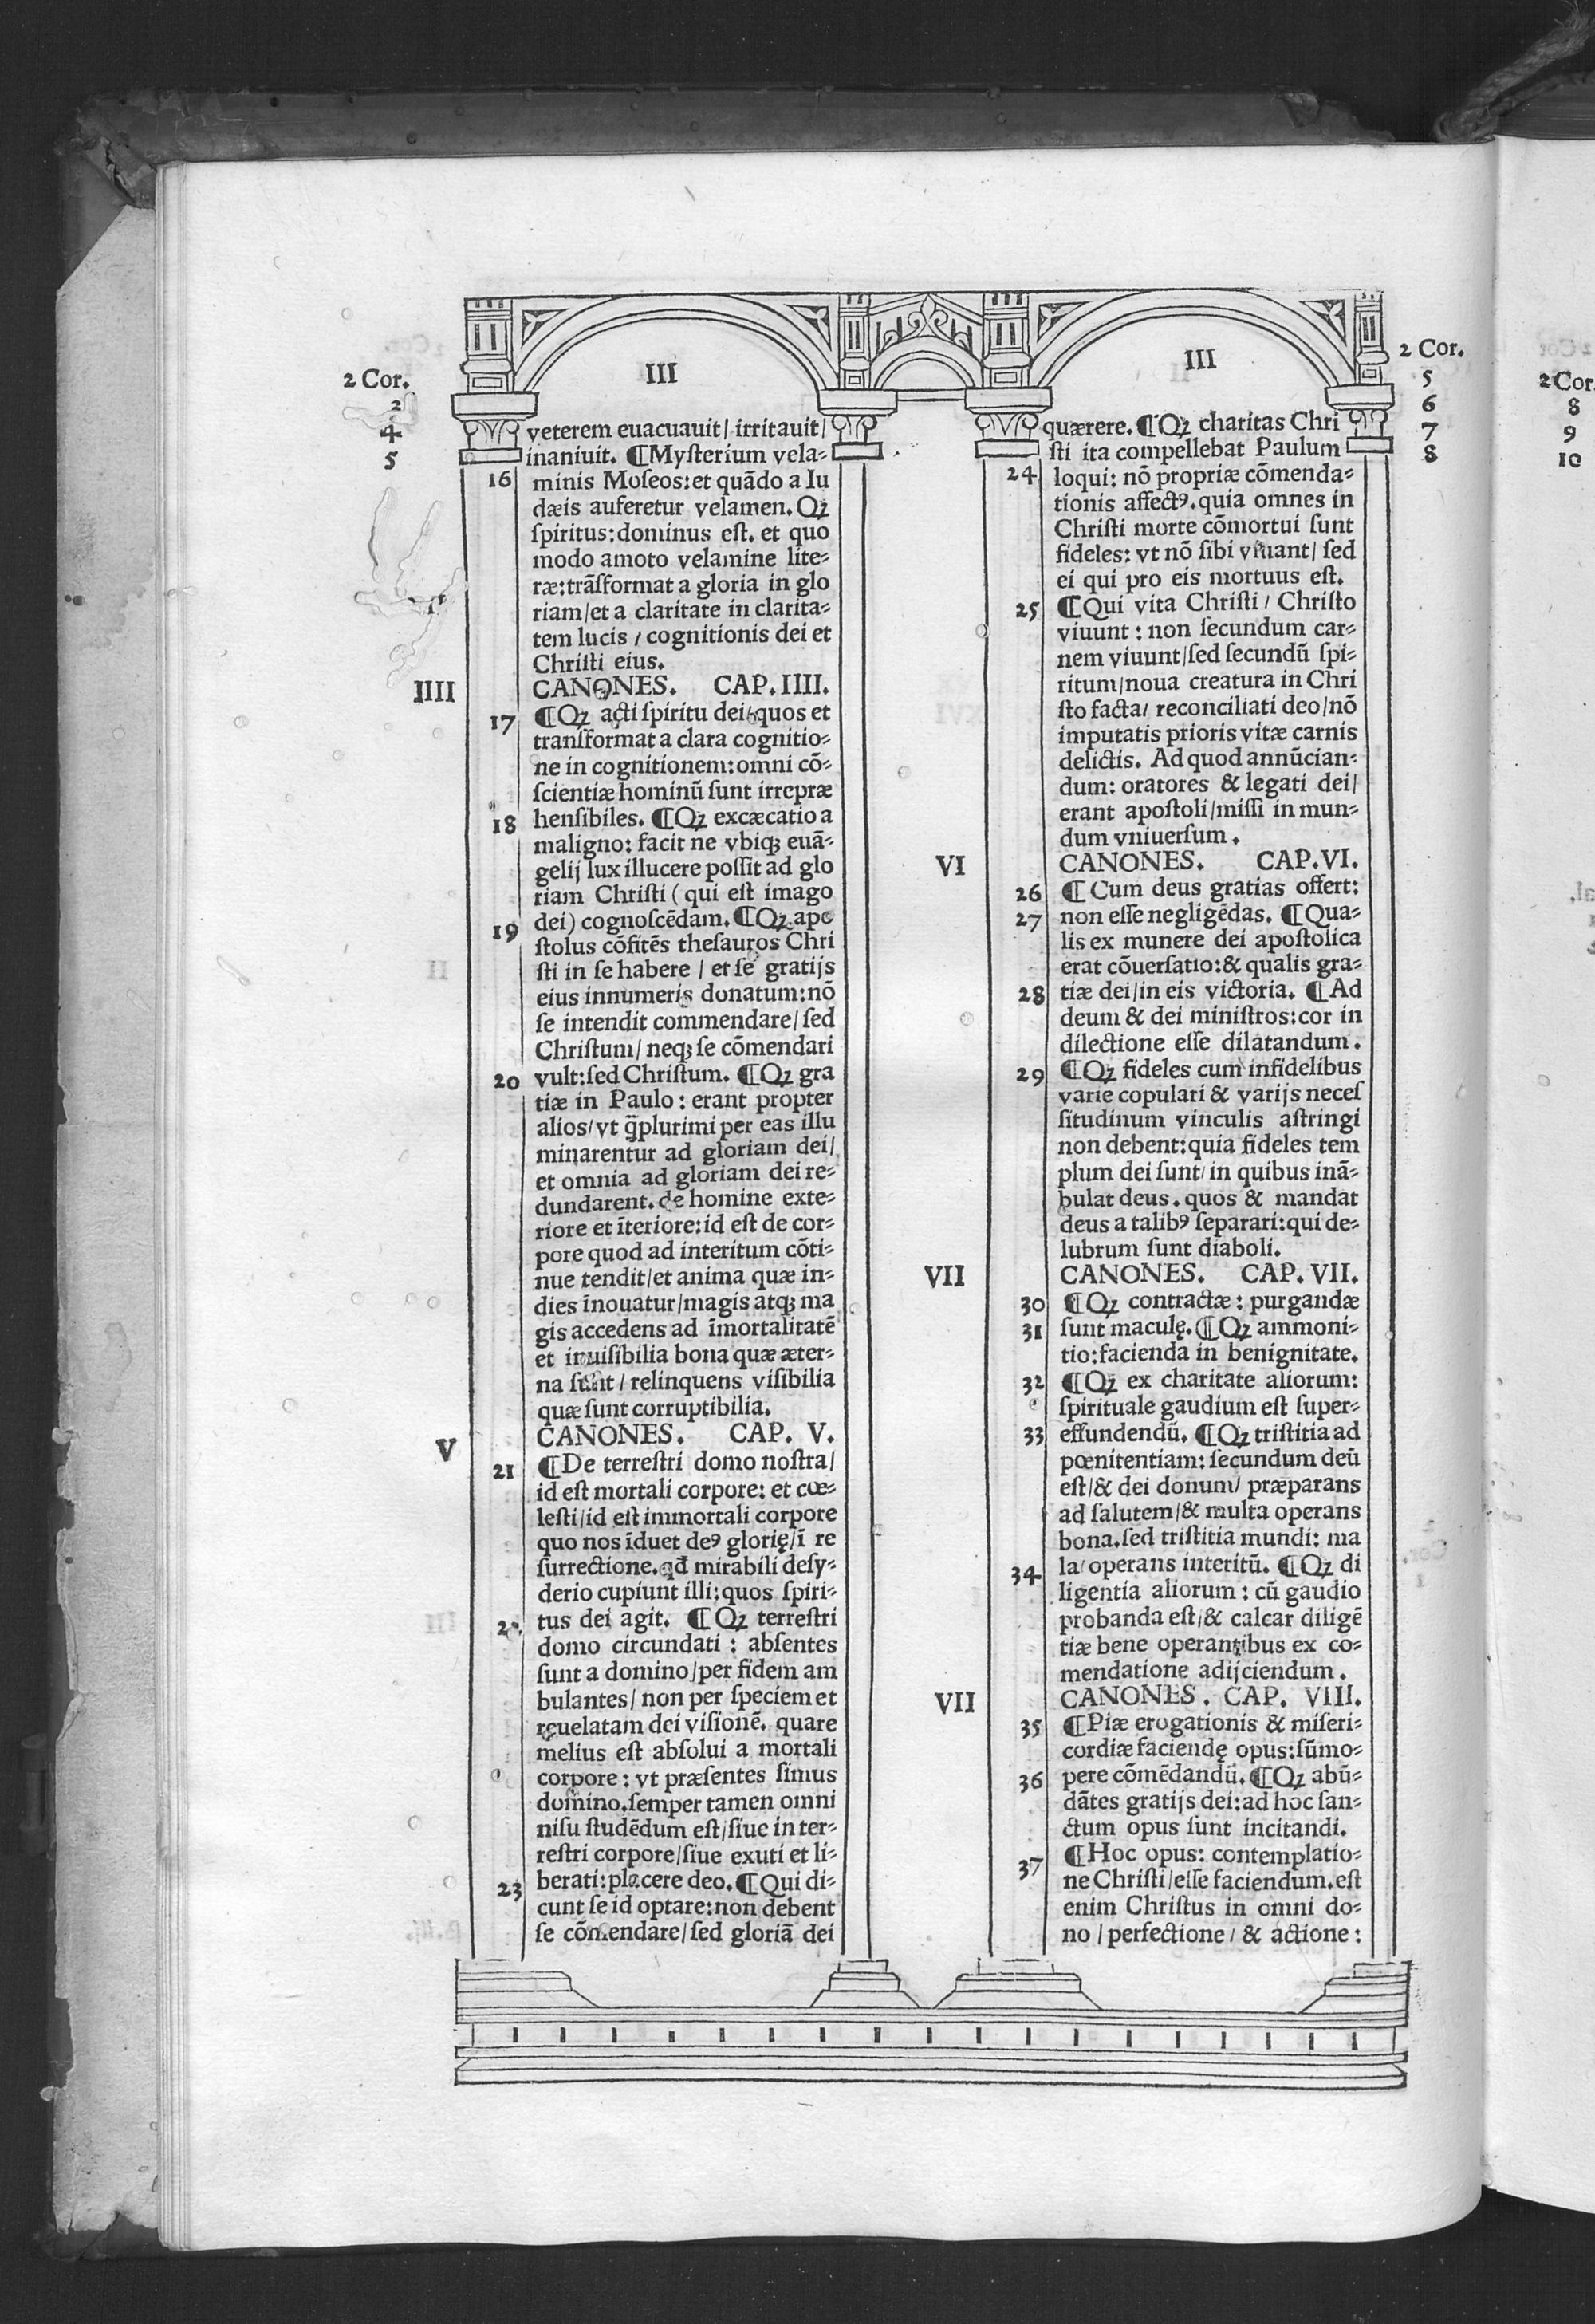 2 Cor.
2
4
5
III
veterem euacuauit/ irritauit/
inaniuit. ¶Mysterium vela⸗
16 minis Moſeos:et quãdo a Iu
dæis auferetur velamen. Qꝫ
ſpiritus:dominus eſt. et quo
modo amoto velamine lite⸗
ræ:trãſformat a gloria in glo
riam/et a claritate in clarita⸗
tem lucis / cognitionis dei et
Chriſti eius.
IIII CANONES. CAP. IIII.
17 ¶Qꝫ acti ſpiritu dei/quos et
tranſformat a clara cognitio⸗
ne in cognitionem:omni cõ⸗
ſcientiæ hominũ ſunt irrepræ
18 henſibiles. ¶Qꝫ excæcatio a
maligno: facit ne vbiqꝫ euã⸗
gelij lux illucere poſſit ad glo
riam Chriſti ( qui eſt imago
19 dei) cognoſcẽdam. ¶Qꝫ apo
ſtolus cõfitẽs theſauros Chri
ſti in ſe habere / et ſe gratijs
eius innumeris donatum:nõ
ſe intendit commendare/ ſed
Chriſtum/ neqꝫ ſe cõmendari
20 vult:ſed Chriſtum. ¶Qꝫ gra
tiæ in Paulo : erant propter
alios/ vt q̃plurimi per eas illu
minarentur ad gloriam dei/
et omnia ad gloriam dei re⸗
dundarent. de homine exte⸗
riore et ĩteriore:id eſt de cor⸗
pore quod ad interitum cõti⸗
nue tendit/et anima quæ in⸗
dies ĩnouatur/magis atqꝫ ma
gis accedens ad ĩmortalitatẽ
et inuiſibilia bona quæ æter⸗
na ſunt / relinquens viſibilia
quæ ſunt corruptibilia.
V CANONES. CAP. V.
21 ¶De terreſtri domo noſtra/
id eſt mortali corpore: et cœ⸗
leſti/id eſt immortali corpore
quo nos ĩduet deꝰ glorię/ĩ re
ſurrectione. qđ mirabili deſy⸗
derio cupiunt illi:quos ſpiri⸗
tus dei agit. ¶Qꝫ terreſtri
domo circundati : abſentes
ſunt a domino/per fidem am
bulantes/ non per ſpeciem et
reuelatam dei viſionẽ. quare
melius eſt abſolui a mortali
corpore : vt præſentes ſimus
domino.ſemper tamen omni
niſu ſtudẽdum eſt/ſiue in ter⸗
reſtri corpore/ſiue exuti et li⸗
23 berati:placere deo. ¶Qui di⸗
cunt ſe id optare:non debent
ſe cõmendare/ſed gloriã dei
2 Cor.
5
6
7
8
III
quærere. ¶Qꝫ charitas Chri
ſti ita compellebat Paulum
24 loqui: nõ propriæ cõmenda⸗
tionis affectꝰ.quia omnes in
Chriſti morte cõmortui ſunt
fideles: vt nõ ſibi viuant/ ſed
ei qui pro eis mortuus eſt.
25 ¶Qui vita Chriſti / Chriſto
viuunt : non ſecundum car⸗
nem viuunt/ſed ſecundũ ſpi⸗
ritum/noua creatura in Chri
ſto facta/ reconciliati deo/nõ
imputatis prioris vitæ carnis
delictis. Ad quod annũcian⸗
dum: oratores & legati dei/
erant apoſtoli/miſſi in mun⸗
dum vniuerſum .
VI CANONES. CAP. VI.
26 ¶ Cum deus gratias offert:
27 non eſſe negligẽdas. ¶Qua⸗
lis ex munere dei apoſtolica
erat cõuerſatio:& qualis gra⸗
28 tiæ dei/in eis victoria. ¶Ad
deum & dei miniſtros:cor in
dilectione eſſe dilatandum .
29 ¶Qꝫ fideles cum infidelibus
varie copulari & varijs neceſ
ſitudinum vinculis aſtringi
non debent:quia fideles tem
plum dei ſunt/ in quibus inã⸗
bulat deus . quos & mandat
deus a talibꝰ ſeparari:qui de⸗
lubrum ſunt diaboli.
VII CANONES. CAP. VII.
30 ¶Qꝫ contractæ : purgandæ
31 ſunt maculę. ¶Qꝫ ammoni⸗
tio:facienda in benignitate.
32 ¶Qꝫ ex charitate aliorum:
ſpirituale gaudium eſt ſuper⸗
33 effundendũ. ¶Qꝫ triſtitia ad
pœnitentiam: ſecundum deũ
eſt/& dei donum/ præparans
ad ſalutem/& multa operans
bona.ſed triſtitia mundi: ma
34 la/operans interitũ. ¶Qꝫ di
ligentia aliorum : cũ gaudio
probanda eſt/& calcar diligẽ
tiæ bene operantibus ex co⸗
mendatione adijciendum .
VII CANONES . CAP. VIII.
35 ¶Piæ erogationis & miſeri⸗
cordiæ faciendę opus:ſũmo⸗
36 pere cõmẽdandũ. ¶Qꝫ abũ⸗
dãtes gratijs dei:ad hoc ſan⸗
ctum opus ſunt incitandi.
37 ¶Hoc opus: contemplatio⸗
ne Chriſti/eſſe faciendum.eſt
enim Chriſtus in omni do⸗
no / perfectione / & actione :
2 Cor
8
9
10